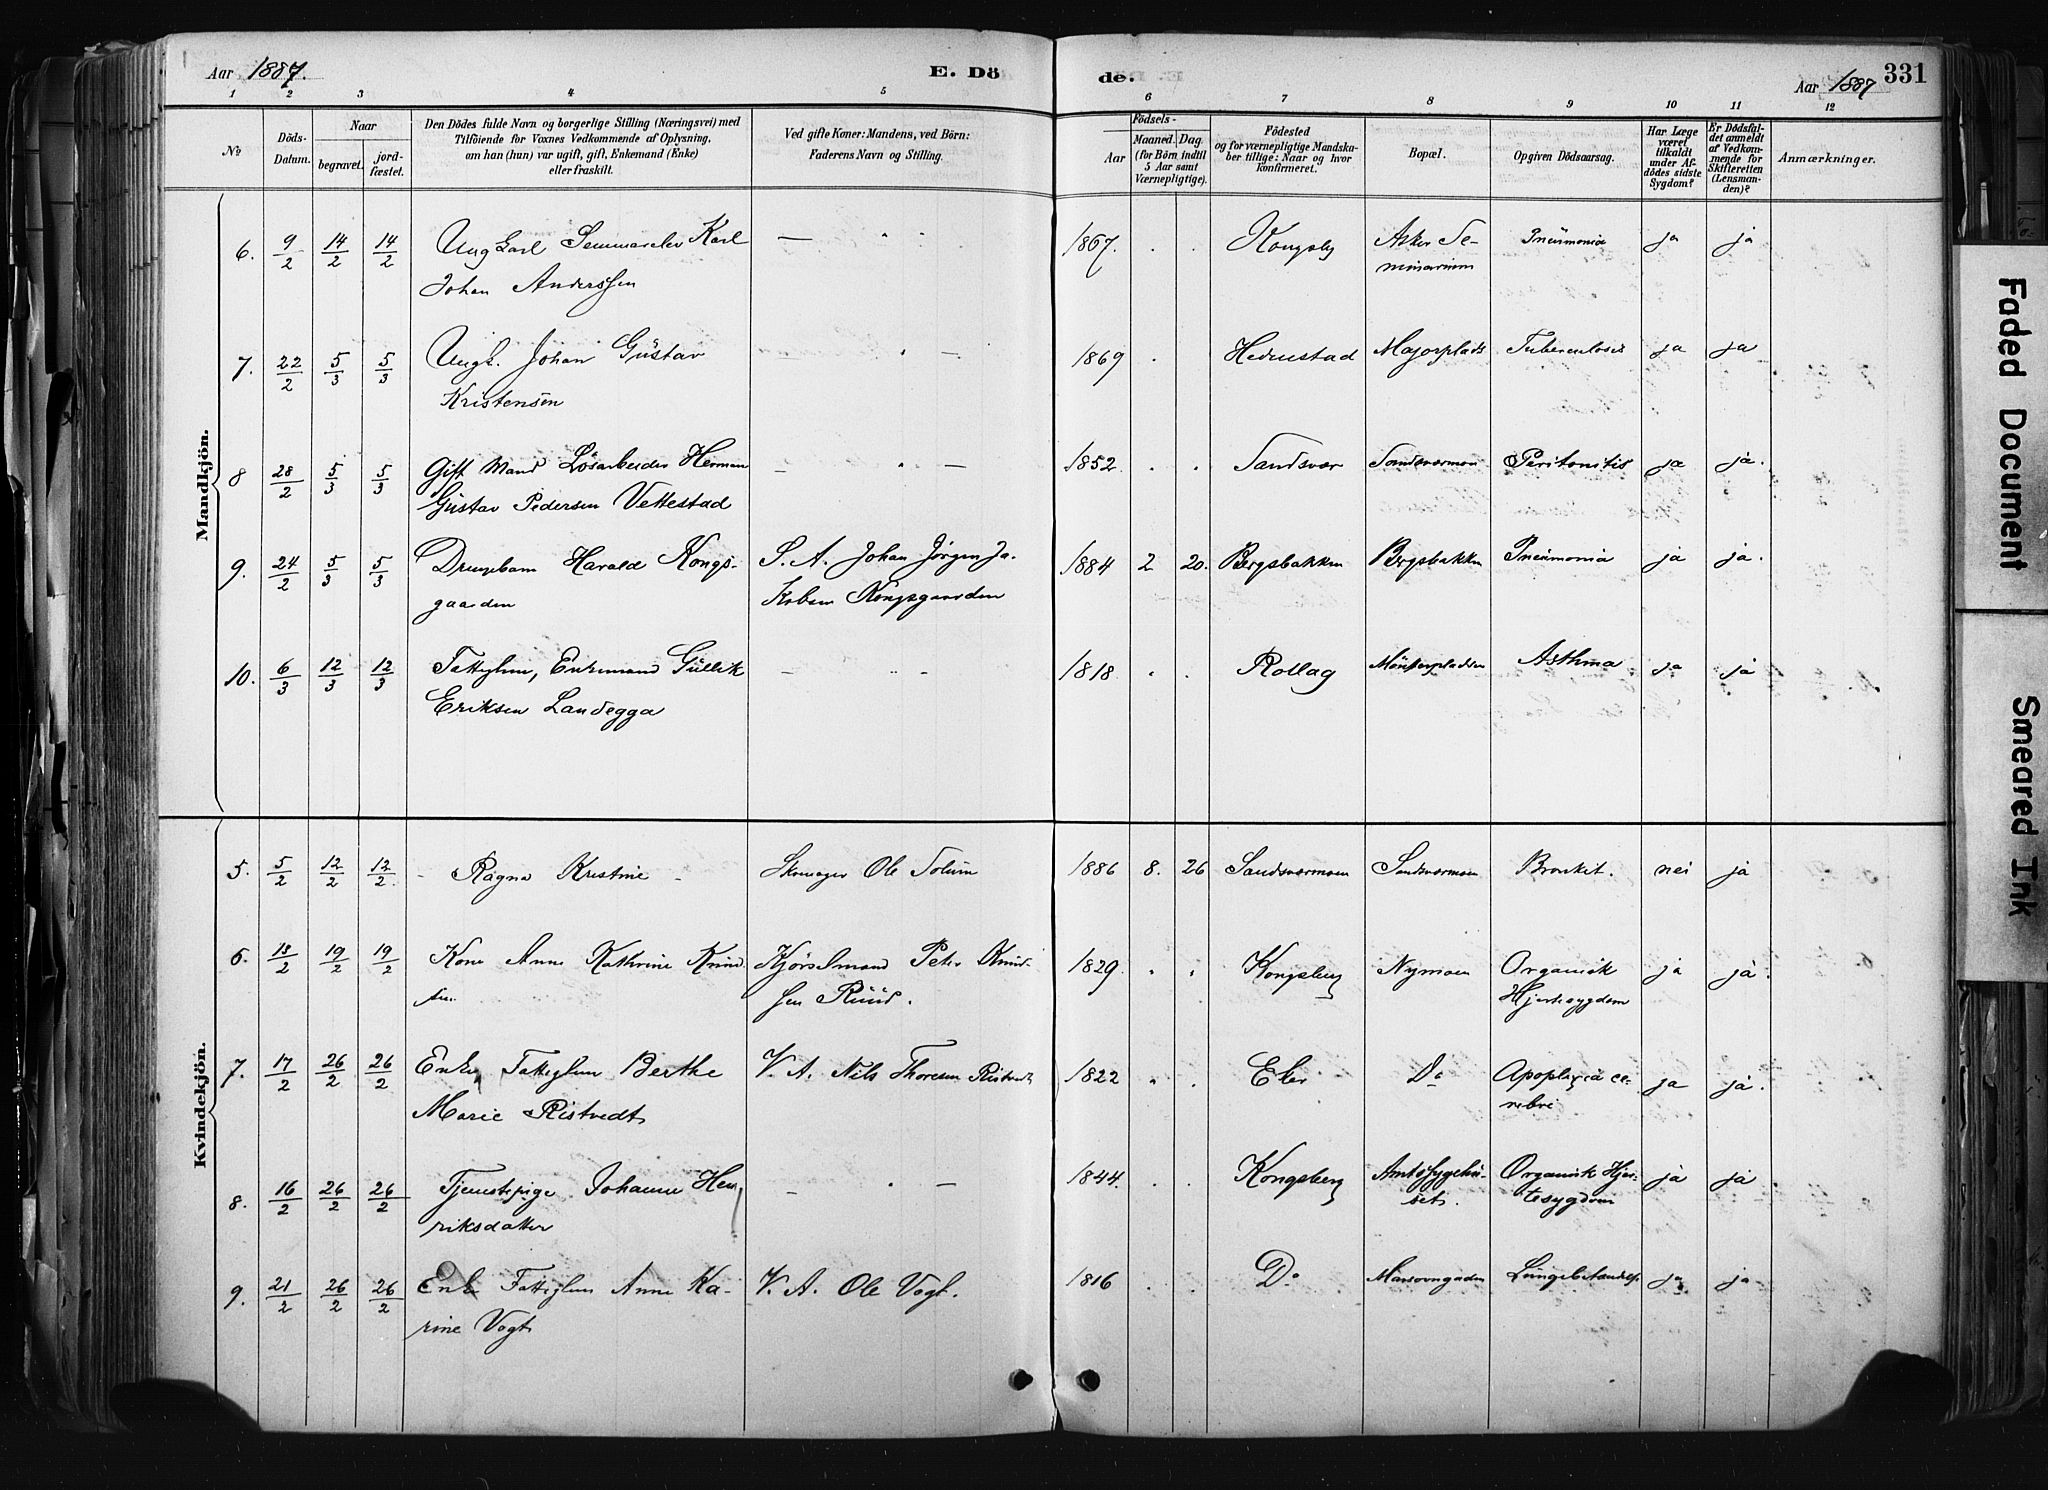 Aar 1887. E. Dö de. Aar 1887 331
1 2 3 4 5 6 7 8 9 10 11 12
No
Döds-
Datum.
Naar
begravet.
jord-
fæstet.
Den Dödes fulde Navn og borgerlige Stilling (Næringsvei) med
Tilföiende for Voxnes Vedkommende af Oplysning,
om han (hun) var ugift, gift, Enkemand (Enke)
eller fraskilt.
Ved gifte Koner: Mandens, ved Börn:
Faderens Navn og Stilling.
Födsels-
Aar
Maaned. Dag.
(for Börn indtil
5 Aar samt
Værnepligtige).
Födested
og for værnepligtige Mandska-
ber tillige: Naar og hvor
konfirmeret.
Bopæl.
Opgiven Dödsaarsag.
Har Læge
været
tilkaldt
under Af-
dödes sidste
Sygdom?
Er Dödsfal-
det anmeldt
af Vedkom-
mende for
Skifteretten
(Lensman-
den)?
Anmærkninger.
Mandkjön.
6. 9/2 14/2 14/2 Ungkarl Karl — " " 1867. . . Kongsbg Asker Se- Pneumonia ja ja
Johan Anderssen minarium
7. 22/2 5/3 5/3 Ungk. Johan Gustav " — 1869 . . Hedenstad Majorplads Tuberculosis ja ja
Kristensen
8 28/2 5/3 5/3 Gift Mand Lösarbeider Herman — " — 1852. . . Sandsvær Sandsværmoen Peritonitis ja ja.
Gustav Pedersen Vettestad
9. 24/2 5/3 5/3 Drengebarn Harald Kongs- S. A. Johan Jörgen Ja- 1884 2 20. Bergsbakken Bergsbakken Pneumonia ja ja.
gaarden kobsen Kongsgaarden
10. 6/3 12/3 12/3 Fattiglem, Enkemand Gullik — " — 1818. . . Rollag Asthma ja ja
Eriksen Landegga
Kvindekjön.
5. 5/2 12/2 12/2. - Ragna Kristine - Skomager Ole Solum 1886 8. 26 Sandsværmoen Sandsværmoen Bronkit. nei ja
6. 13/2 19/2 19/2 Kone Anne Kathrine Knud- Kjörselmand Peter Knud- 1829. " " Kongsberg Nymoen Organisk ja ja.
sen sen Ruud. Hjertesygdom
7. 17/2 26/2 26/2 Enke, Fattiglem Berthe F. A. Nils Thoresen Ristvedt 1822 " . Eker Do Apoplexia ce- ja ja.
Marie Ristvedt rebri
8. 16/2 26/2 26/2 Tjenestepige Johanne Hen- — " — 1844. . . Kongsberg Amtssygehu- Organisk Hjer- ja ja
riksdatter set. tesygdom
9. 21/2 26/2 26/2 Enk Fattiglem Anne Ka- F. A. Ole Vogt. 1816 . . Do Lungebetændelse ja ja
rine Vogt
Faded Document
Smeared Ink